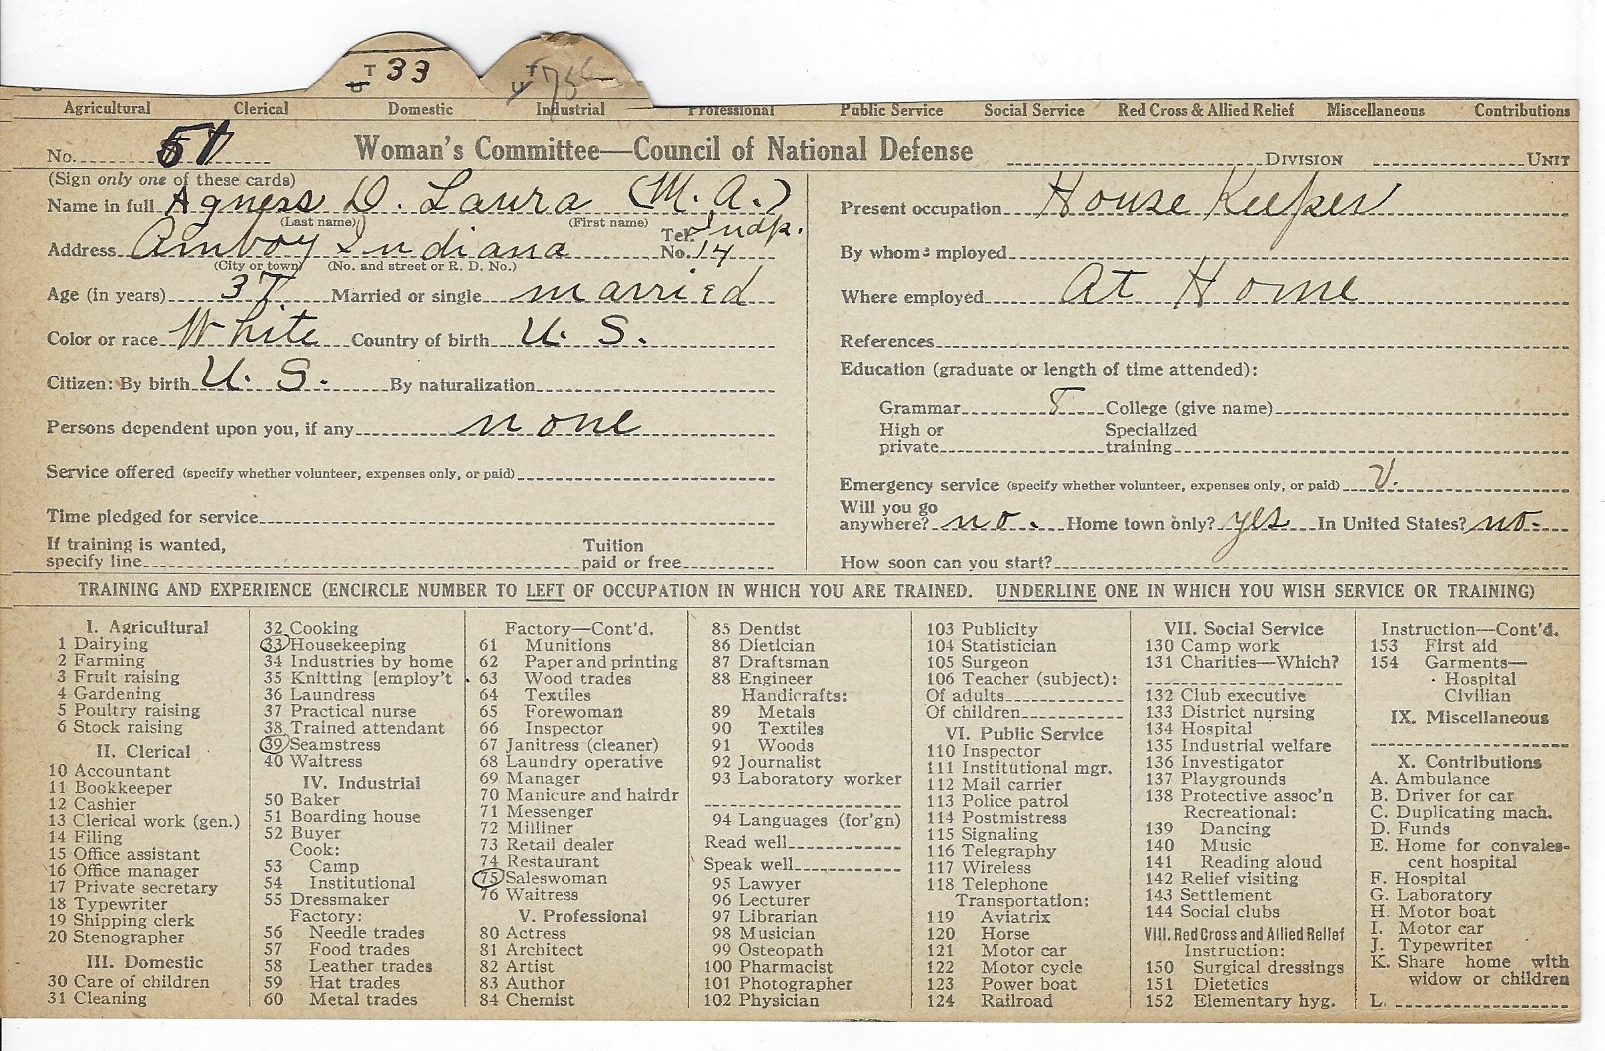 T 33
T 75
Agricultural Clerical Domestic Industrial Professional Public Service Social Service Red Cross & Allied Relief Miscellaneous Contributions
No. 51 Woman's Committee—Council of National Defense DIVISION UNIT
(Sign only one of these cards)
Name in full Agness D. Laura (M. A.)
(Last name) (First name)
Address Amboy Indiana Tel. No. Indp. 14
(City or town) (No. and street or R. D. No.)
Age (in years) 37. Married or single married
Color or race White Country of birth U. S.
Citizen: By birth U. S. By naturalization
Persons dependent upon you, if any none
Service offered (specify whether volunteer, expenses only, or paid)
Time pledged for service
If training is wanted, specify line Tuition paid or free
Present occupation House Keeper
By whom employed
Where employed At Home
References
Education (graduate or length of time attended):
Grammar 8 College (give name)
High or private Specialized training
Emergency service (specify whether volunteer, expenses only, or paid) V.
Will you go anywhere? no. Home town only? yes In United States? no.
How soon can you start?
TRAINING AND EXPERIENCE (ENCIRCLE NUMBER TO LEFT OF OCCUPATION IN WHICH YOU ARE TRAINED. UNDERLINE ONE IN WHICH YOU WISH SERVICE OR TRAINING)
I. Agricultural
1 Dairying
2 Farming
3 Fruit raising
4 Gardening
5 Poultry raising
6 Stock raising
II. Clerical
10 Accountant
11 Bookkeeper
12 Cashier
13 Clerical work (gen.)
14 Filing
15 Office assistant
16 Office manager
17 Private secretary
18 Typewriter
19 Shipping clerk
20 Stenographer
III. Domestic
30 Care of children
31 Cleaning
32 Cooking
33 Housekeeping
34 Industries by home
35 Knitting [employ't
36 Laundress
37 Practical nurse
38 Trained attendant
39 Seamstress
40 Waitress
IV. Industrial
50 Baker
51 Boarding house
52 Buyer
Cook:
53 Camp
54 Institutional
55 Dressmaker
Factory:
56 Needle trades
57 Food trades
58 Leather trades
59 Hat trades
60 Metal trades
Factory—Cont'd.
61 Munitions
62 Paper and printing
63 Wood trades
64 Textiles
65 Forewoman
66 Inspector
67 Janitress (cleaner)
68 Laundry operative
69 Manager
70 Manicure and hairdr
71 Messenger
72 Milliner
73 Retail dealer
74 Restaurant
75 Saleswoman
76 Waitress
V. Professional
80 Actress
81 Architect
82 Artist
83 Author
84 Chemist
85 Dentist
86 Dietician
87 Draftsman
88 Engineer
Handicrafts:
89 Metals
90 Textiles
91 Woods
92 Journalist
93 Laboratory worker
94 Languages (for'gn)
Read well
Speak well
95 Lawyer
96 Lecturer
97 Librarian
98 Musician
99 Osteopath
100 Pharmacist
101 Photographer
102 Physician
103 Publicity
104 Statistician
105 Surgeon
106 Teacher (subject):
Of adults
Of children
VI. Public Service
110 Inspector
111 Institutional mgr.
112 Mail carrier
113 Police patrol
114 Postmistress
115 Signaling
116 Telegraphy
117 Wireless
118 Telephone
Transportation:
119 Aviatrix
120 Horse
121 Motor car
122 Motor cycle
123 Power boat
124 Railroad
VII. Social Service
130 Camp work
131 Charities—Which?
132 Club executive
133 District nursing
134 Hospital
135 Industrial welfare
136 Investigator
137 Playgrounds
138 Protective assoc'n
Recreational:
139 Dancing
140 Music
141 Reading aloud
142 Relief visiting
143 Settlement
144 Social clubs
VIII. Red Cross and Allied Relief
Instruction:
150 Surgical dressings
151 Dietetics
152 Elementary hyg.
Instruction—Cont'd.
153 First aid
154 Garments—
Hospital
Civilian
IX. Miscellaneous
X. Contributions
A. Ambulance
B. Driver for car
C. Duplicating mach.
D. Funds
E. Home for convales-
cent hospital
F. Hospital
G. Laboratory
H. Motor boat
I. Motor car
J. Typewriter
K. Share home with
widow or children
L.